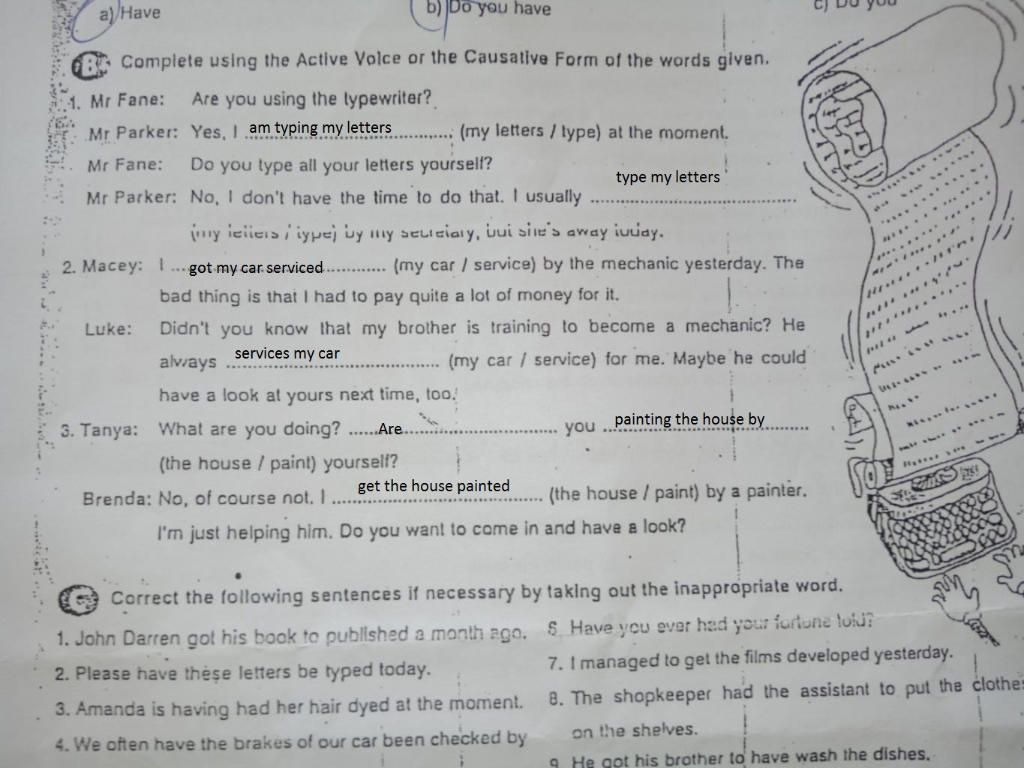 a) Have b) Do you have c) Do you
B. Complete using the Active Voice or the Causative Form of the words given.
1. Mr Fane: Are you using the typewriter?
Mr Parker: Yes, I ...am typing my letters... (my letters / type) at the moment.
Mr Fane: Do you type all your letters yourself?
type my letters
Mr Parker: No, I don't have the time to do that. I usually ..............................
(my letters / type) by my secretary, but she's away today.
2. Macey: I ...got my car serviced............ (my car / service) by the mechanic yesterday. The
bad thing is that I had to pay quite a lot of money for it.
Luke: Didn't you know that my brother is training to become a mechanic? He
always ...services my car... (my car / service) for me. Maybe he could
have a look at yours next time, too.
3. Tanya: What are you doing? ......Are........................ you ...painting the house by.......
(the house / paint) yourself?
Brenda: No, of course not. I ...get the house painted... (the house / paint) by a painter.
I'm just helping him. Do you want to come in and have a look?
Correct the following sentences if necessary by taking out the inappropriate word.
1. John Darren got his book to published a month ago.
2. Please have these letters be typed today.
3. Amanda is having had her hair dyed at the moment.
4. We often have the brakes of our car been checked by
6. Have you ever had your fortune told?
7. I managed to get the films developed yesterday.
8. The shopkeeper had the assistant to put the clothes
on the shelves.
9. He got his brother to have wash the dishes.